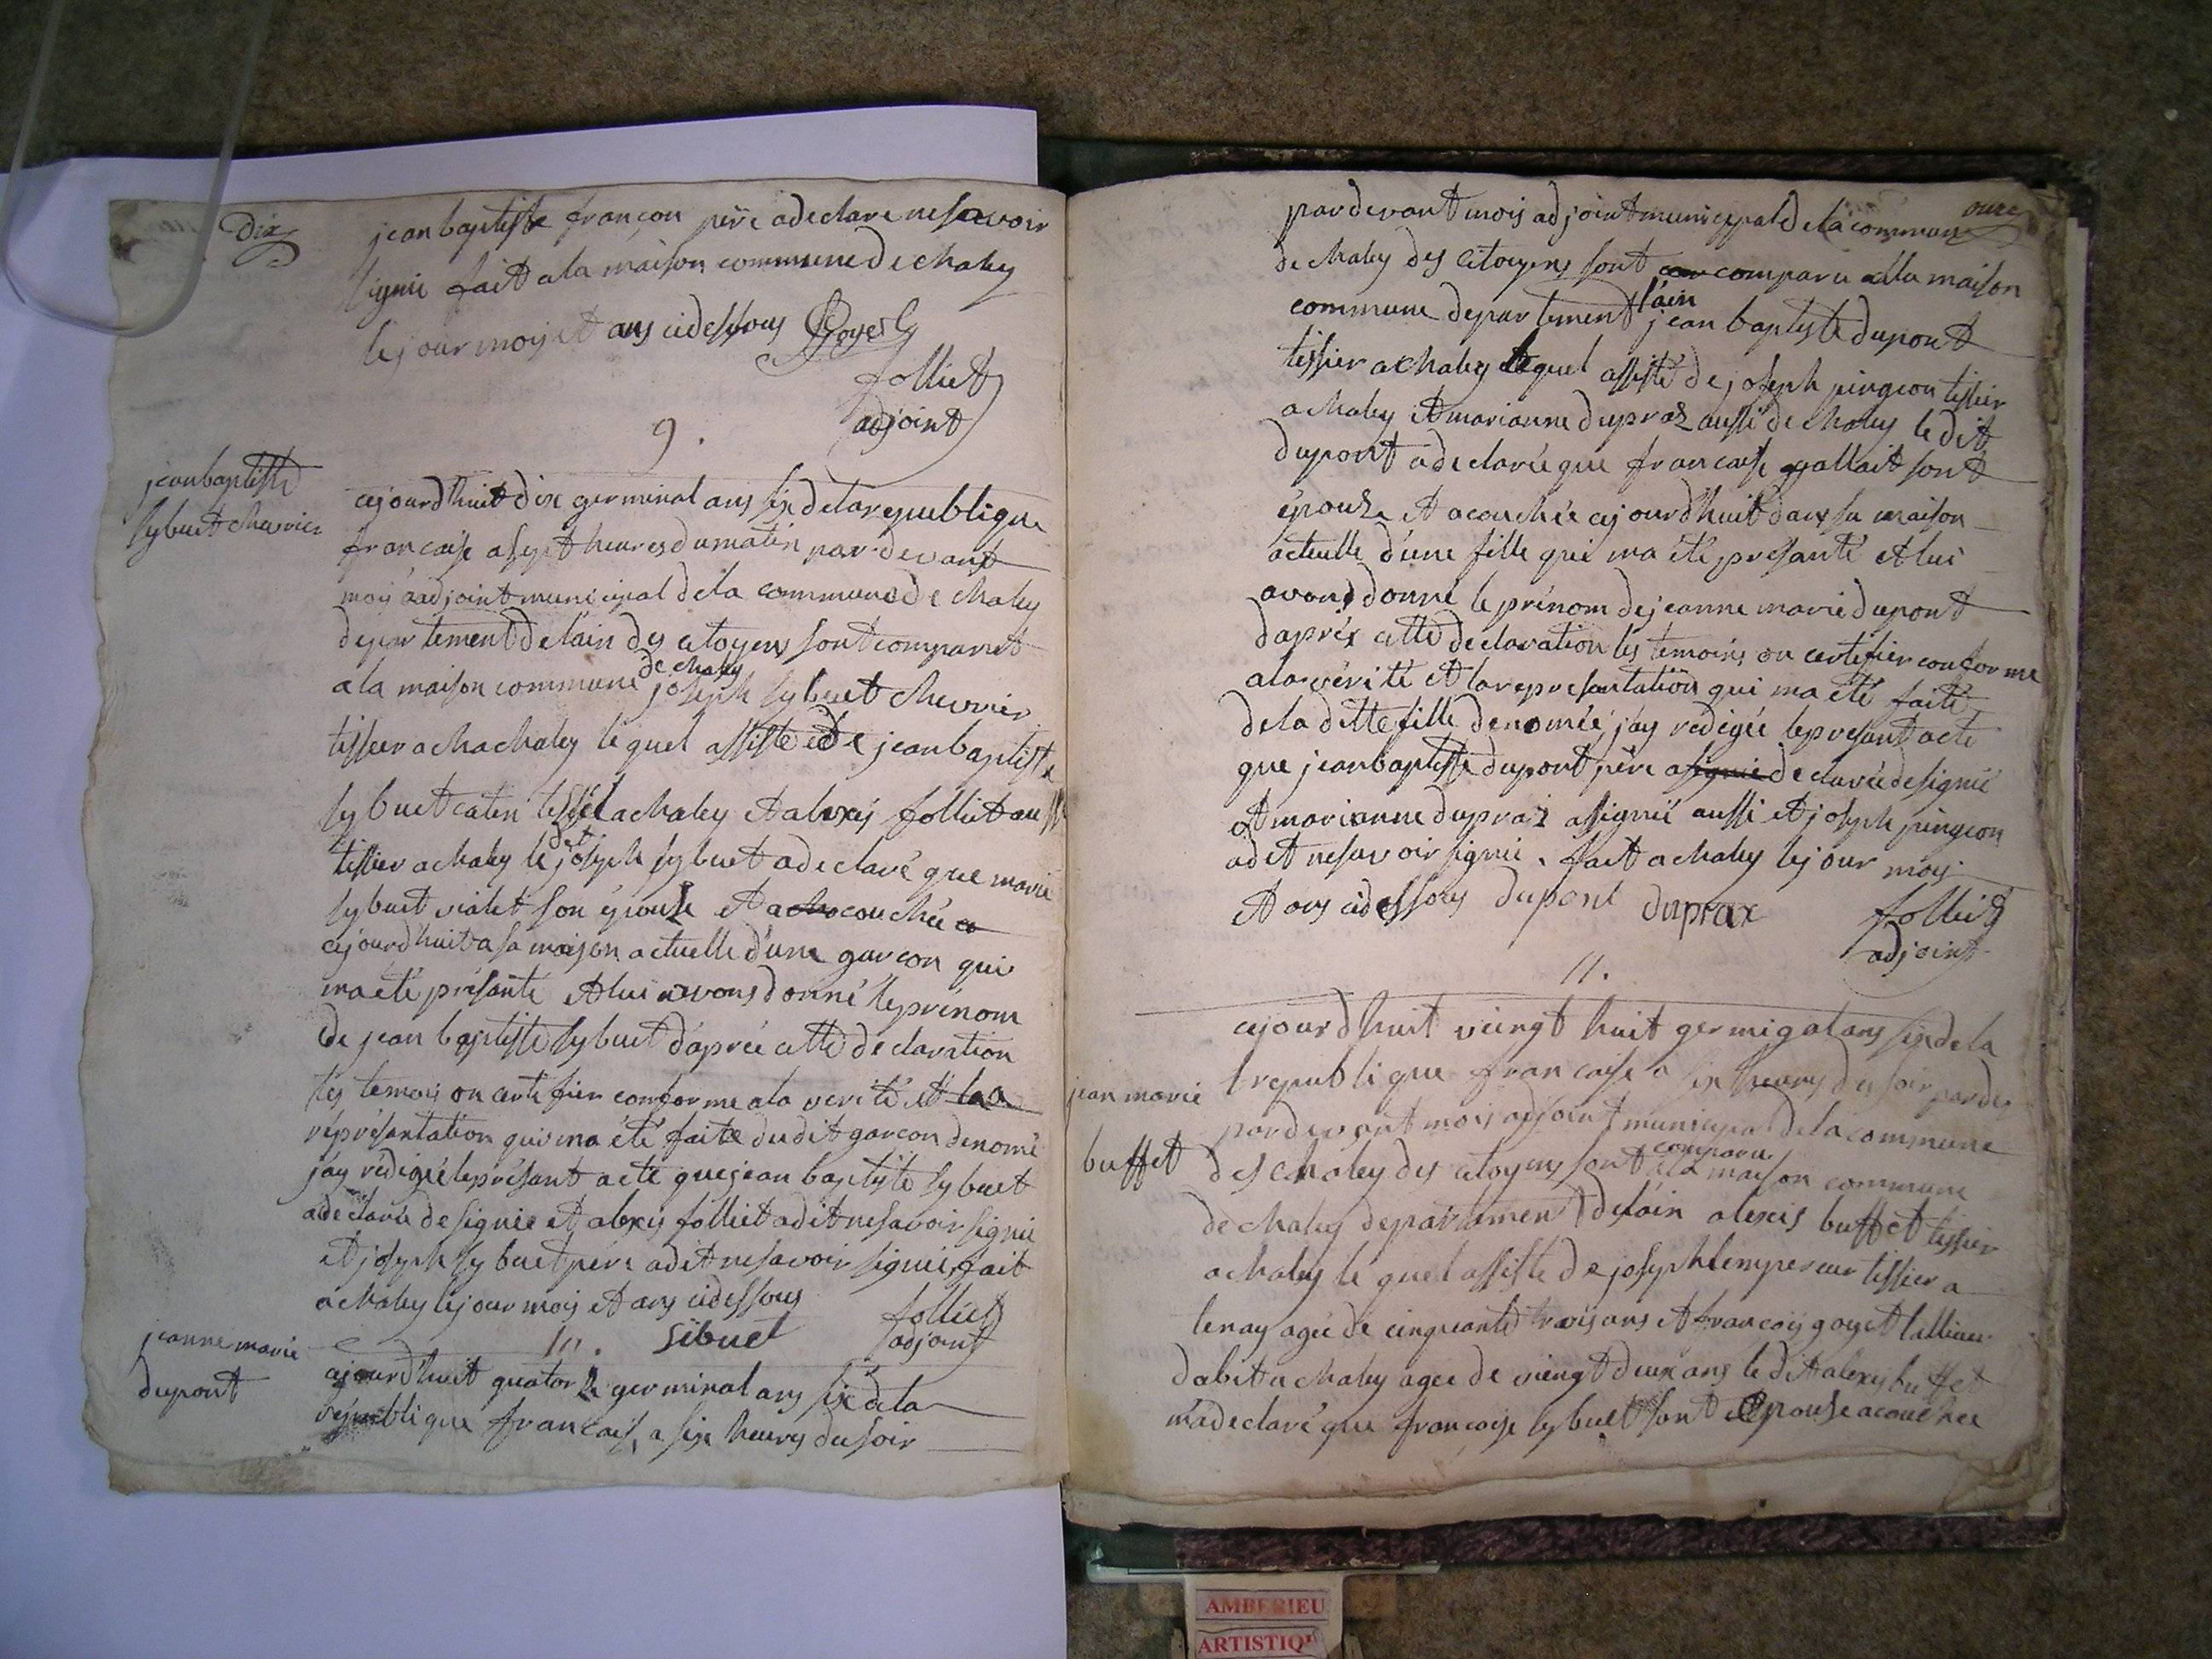 Dix
jean baptiste françon père a declare ne savoir
signé fait a la maison commune de chaley
le jour mois et ans cidessous Goyet
folliet
adjoint
9.
jean baptiste
sybuet chevrier
ajourdhuit dix germinal ans six de la republique
francaise a sept heures du matin par devant
mois adjoint municipal de la commune de chaley
departement de lain des citoyens sont comparut
de chaley
a la maison commune joseph sybuet chevrier
tissier a cha chaley le quel assisté de jean baptiste
sybuet catin tissier a chaley et alexis folliet aussi
dit
tissier a chaley le joseph sybuet a declaré que marie
sybuet violet son épouse et a couchée
ajourdhuit a sa maison actuelle d'une garcon qui
ma été présanté et lui avons donné le prénom
de jean baptiste sybuet d'aprée cette declaration
les temois on certifier conforme a la verité et la
réprésantation qui ma été faite dudit garcon denomé
j'ay rédigié le présant acte que jean baptiste sybuet
a declarée de signée et alexis folliet a dit ne savoir signié
et joseph sybuet père a dit ne savoir signié, fait
a chaley le jour mois et ans cidessous
folliet
10. sibuet adjoint
jeanne marie
dupont
ajourdhuit quatorze germinal ans six de la
république francais, a six heures du soir
onze
par devant mois adjoint municippal de la commune
de chaley des citoyens sont comparu alla maison
l'ain
commune departement jean baptiste dupont
tissier a chaley le quel assisté de joseph pingeon tissier
a chaley et marianne dupraz aussi de chaley le dit
dupont a declarée que francaise gallait sont
épouze et a couchée ajourdhuit dans sa maison
acteulle d'une fille qui ma été présanté et lui
avons donné le prénom de jeanne marie dupont
daprèx cette declaration les temoins on certifier conforme
a la vérité et la represantation qui ma été faite
de la ditte fille denomée, j'ay redigée le presant acte
que jean baptiste dupont père a signié declarée de signié
et marianne dupraz a signié aussi et joseph pingeon
a dit ne savoir signié. fait a chaley le jour mois
et ans cidessous dupont duprax folliet
adjoint
11.
jean marie
buffet
ajourdhuit vingt huit germigal ans six de la
republique francaise a six heures du soir par de
par devant mois adjoint municipal de la commune
comparu
des chaley des citoyens sont a la maison commune
de chaley departement de lain alexis buffet tissier
a chaley le quel assisté de joseph lempereur tissier a
tenay agée de cinquante trois ans et francois goyet tallieur
dabit a chaley agée de vingt deux ans le dit alexis buffet
m'a declaré que francoise sybuet sont epouse acouchée
AMBERIEU
ARTISTIQU